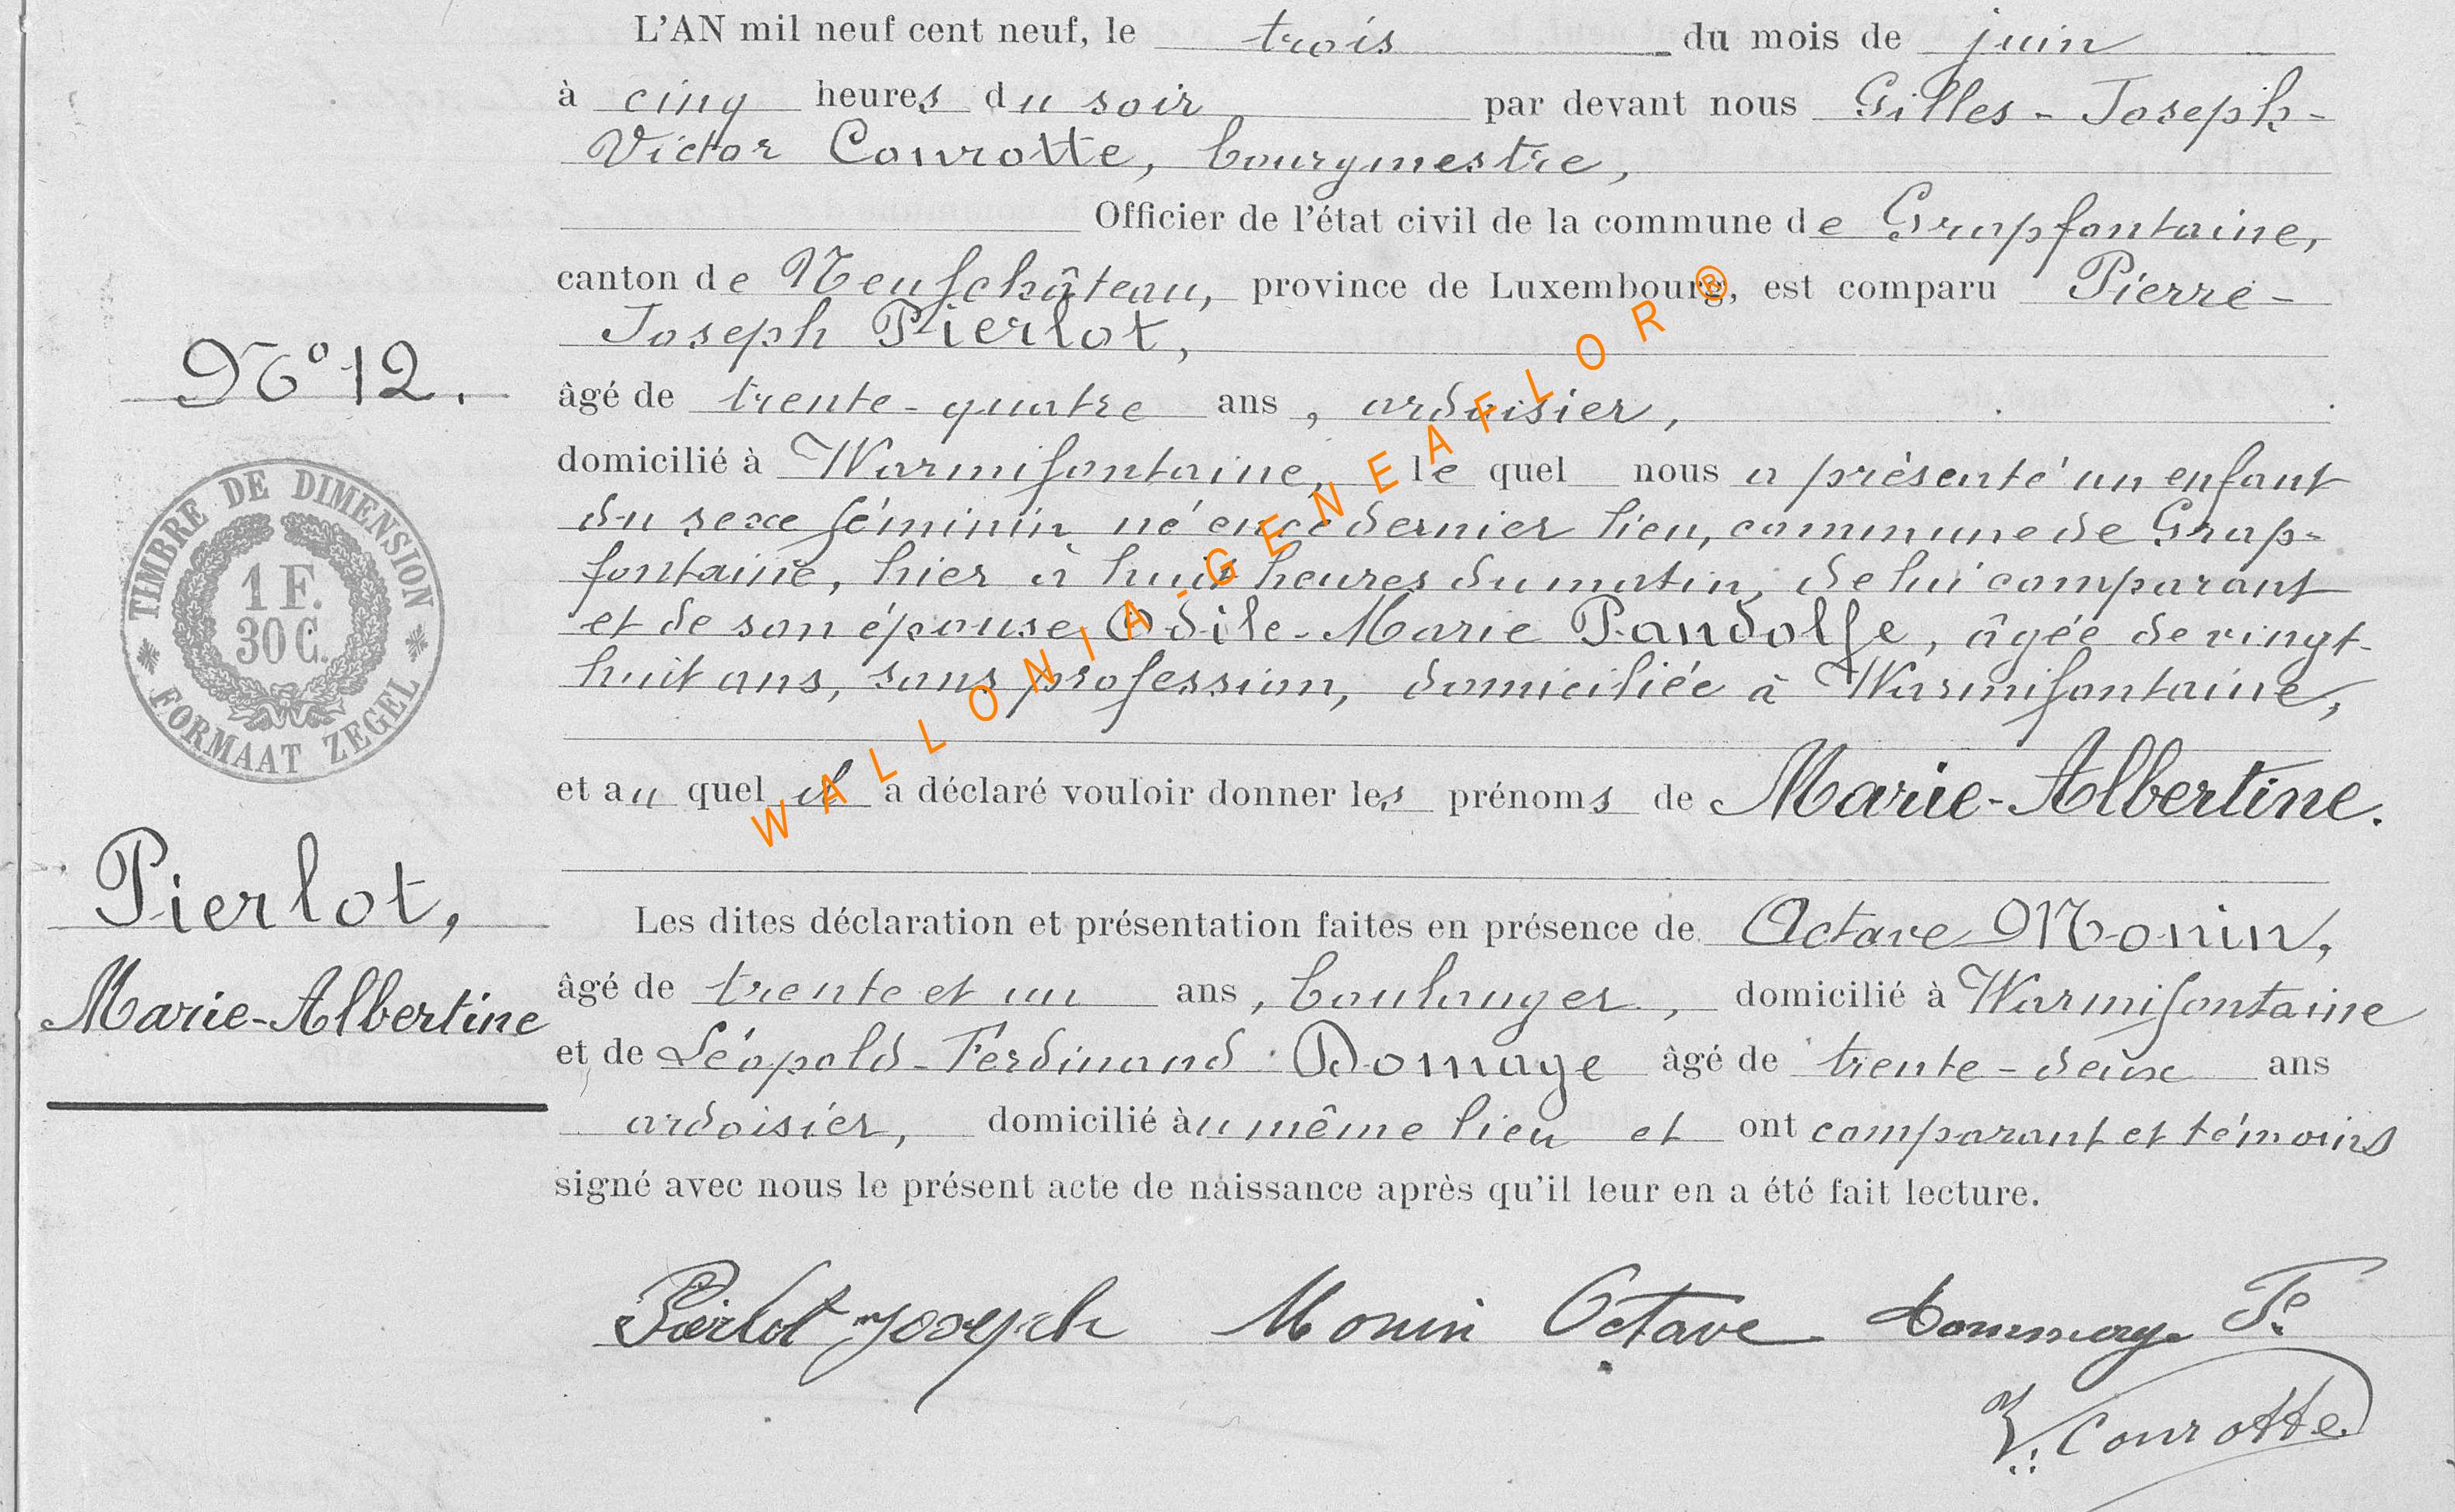 L'AN mil neuf cent neuf, le trois du mois de juin
à cinq heures du soir par devant nous Gilles-Joseph-
Victor Courotte, bourgmestre,
Officier de l'état civil de la commune de Grapfontaine,
canton de Neufchâteau, province de Luxembourg, est comparu Pierre-
Joseph Pierlot,
âgé de trente-quatre ans, ardoisier,
domicilié à Warmifontaine, le quel nous a présenté un enfant
du sexe féminin né en ce dernier lieu, commune de Grap-
fontaine, hier à huit heures du matin, de lui comparant
et de son épouse Odile-Marie Pandolfe, âgée de vingt-
huit ans, sans profession, domiciliée à Warmifontaine,
et au quel il a déclaré vouloir donner les prénoms de Marie-Albertine.
Les dites déclaration et présentation faites en présence de Octave Monin,
âgé de trente et un ans, boulanger, domicilié à Warmifontaine
et de Léopold-Ferdinand Domage âgé de trente-deux ans
ardoisier, domicilié au même lieu et ont comparant et témoins
signé avec nous le présent acte de naissance après qu'il leur en a été fait lecture.
Pierlot Joseph Monin Octave Dommage Fe
V. Courotte
N° 12.
TIMBRE DE DIMENSION
1 F.
30 C.
FORMAAT ZEGEL
Pierlot,
Marie-Albertine
WALLONIA-GENEAFLOR®